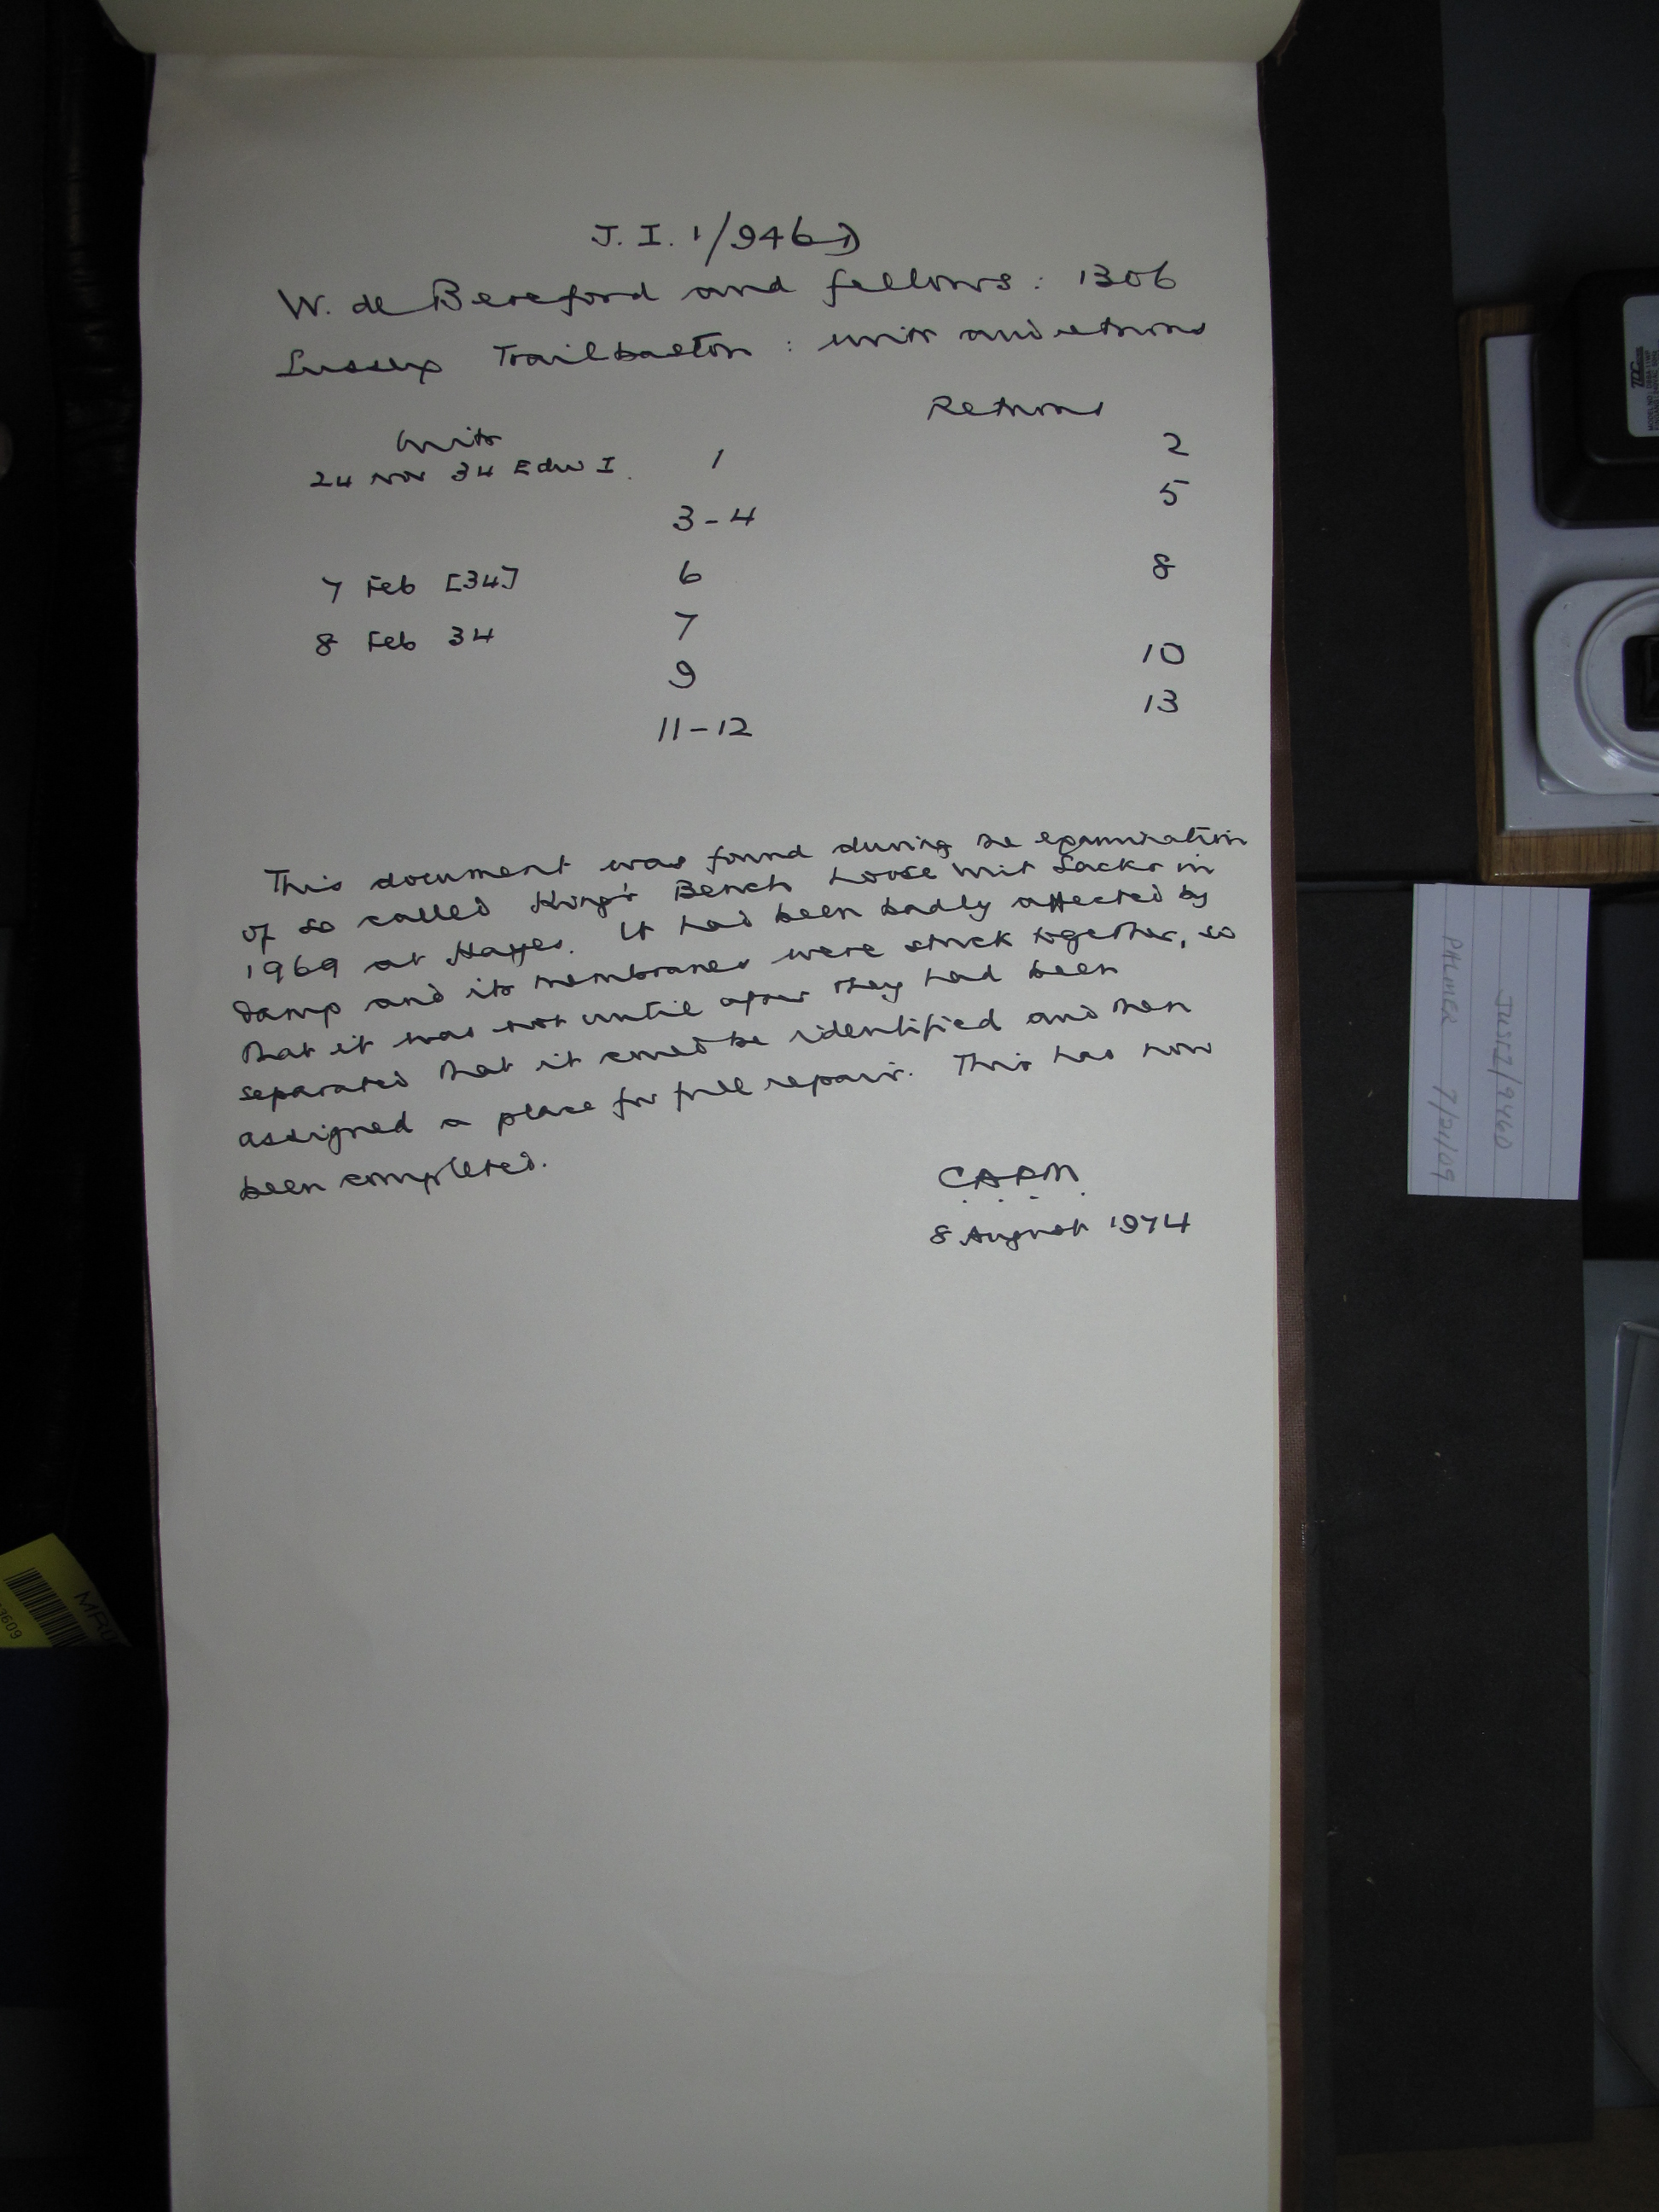 J. I. 1/946D
W. de Bereford and fellows : 1306
Sussex Trailbaston : writs and returns
Writs Returns
24 Nov 34 Edw I. 1 2
3-4 5
7 Feb [34] 6 8
8 Feb 34 7
9 10
11-12 13
This document was found during the examination
of so called King's Bench Loose Writ Sacks in
1969 at Hayes. It had been badly affected by
damp and its membranes were stuck together, so
that it was not until after they had been
separated that it could be identified and then
assigned a place for full repair. This has now
been completed.
CAFM
8 August 1974
JUST1/946D
PALMER 7/21/09
TDC
MRU
3609